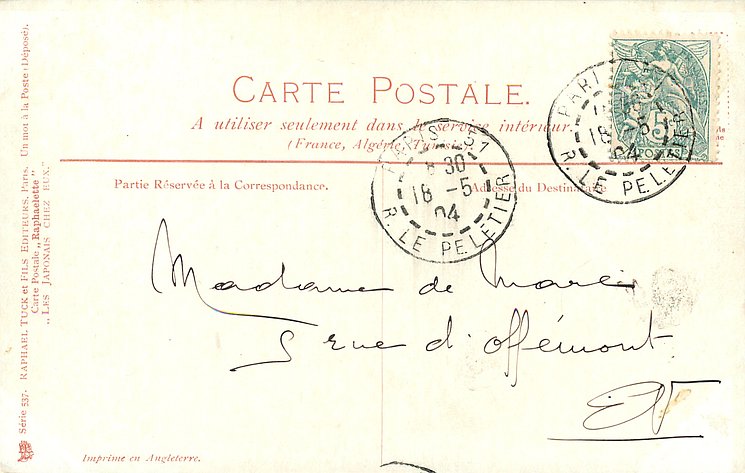 CARTE POSTALE.
A utiliser seulement dans le service intérieur.
(France, Algérie, Tunisie).
Partie Réservée à la Correspondance.
Adresse du Destinataire
PARIS
8 30
18 -5
04
R. LE PELETIER
PARI
18 -5
04
R. LE PELETIER
5
POSTES
Madame de
5 rue d'Offémont
EV
Imprime en Angleterre.
Série 537. RAPHAEL TUCK et FILS EDITEURS, Paris. Un mot à la Poste (Déposé).
Carte Postale „Raphaelette"
„LES JAPONAIS CHEZ EUX."